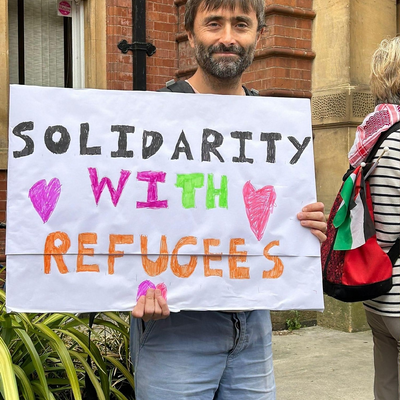 SOLIDARITY
WITH
REFUGEES